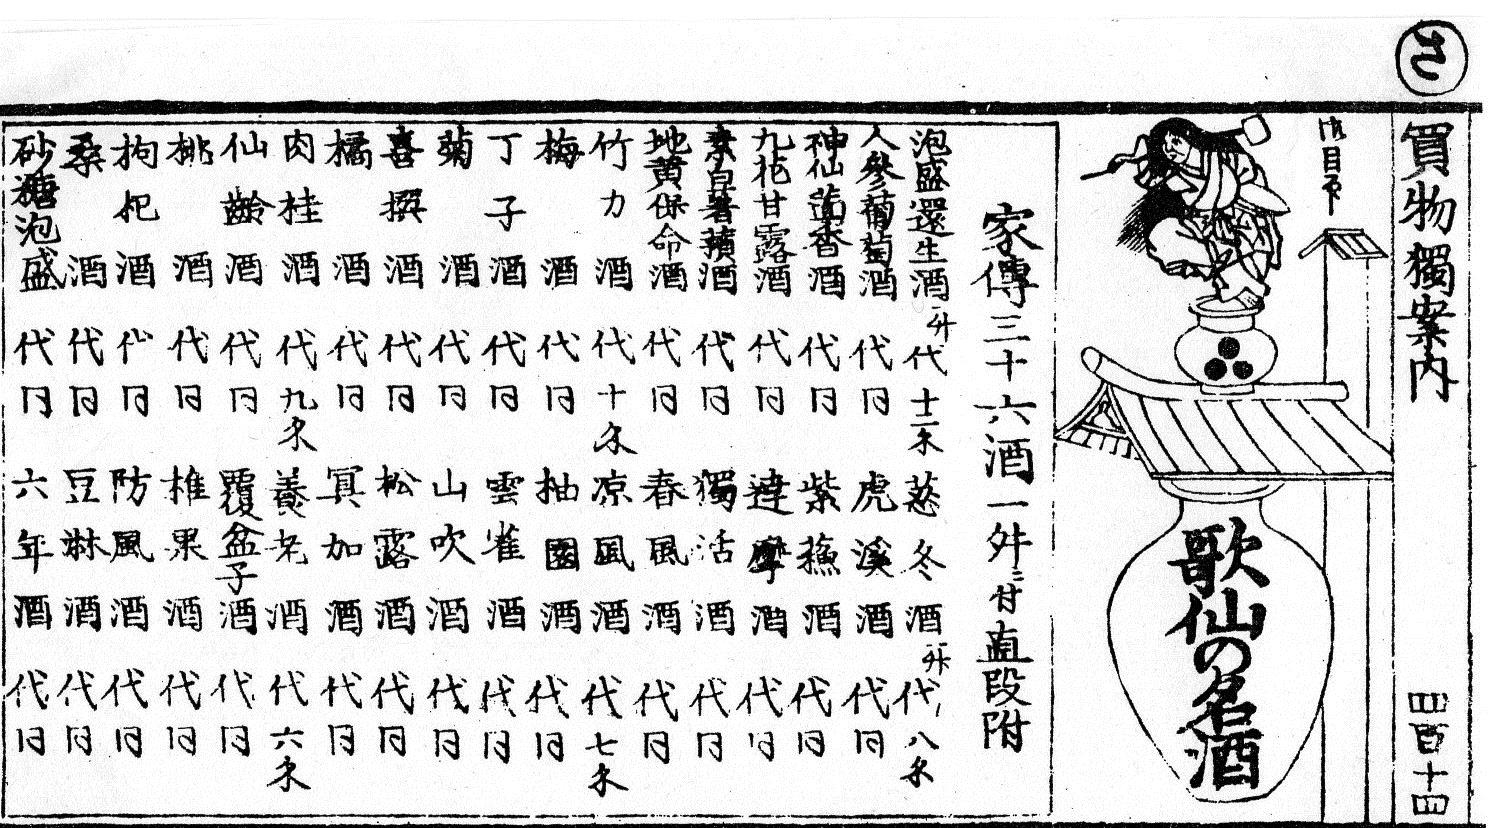 さ
買物獨案内
四百十四
御目印
歌仙の名酒
家傳三十六酒一舛ニ付直段附
泡盛還生酒 一舛 代 十二匁
人參葡萄酒 代 同
神仙茴香酒 代 同
九花甘露酒 代 同
酒 代 同
地黄保命酒 代 同
竹力酒 代 十匁
梅酒 代 同
丁子酒 代 同
菊酒 代 同
喜撰酒 代 同
橘酒 代 同
肉桂酒 代 九匁
仙齢酒 代 同
桃酒 代 同
拘杞酒 代 同
桑酒 代 同
砂糖泡盛 代 同
忍冬酒 一舛 代 八匁
虎溪酒 代 同
紫蘓酒 代 同
達摩酒 代 同
獨活酒 代 同
春風酒 代 同
凉風酒 代 七匁
柚園酒 代 同
雲雀酒 代 同
山吹酒 代 同
松露酒 代 同
冥加酒 代 同
養老酒 代 六匁
覆盆子酒 代 同
椎果酒 代 同
防風酒 代 同
豆淋酒 代 同
六年酒 代 同